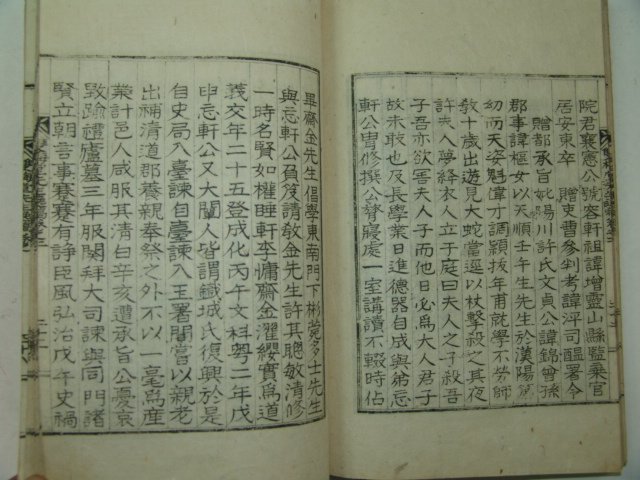 院君襄憲公號容軒祖諱增靈山縣監棄官
居安東卒 贈吏曹參判考諱泙司醞署令
贈都承旨妣陽川許氏文貞公諱錦曾孫
郡事諱樞女以天順壬午生先生於漢陽第
幼而天姿魁偉才調穎拔年甫就學不勞師
敎十歲出遊見大蛇當逕以杖擊殺之其夜
許夫人夢絳衣人立于庭曰夫人之子殺吾
子吾亦欲害夫人子而他日必爲大人君子
故未敢也及長學業日進德器自成與弟忘
軒公胄修撰公膂寢處一室講讀不輟時佔
畢齋金先生倡學東南門下彬多士先生
與忘軒公負笈請敎金先生許其聰敏清修
一時名賢如權睡軒李慵齋金濯纓實爲道
義交年二十五登成化丙午文科粤二年戊
申忘軒公又大闡人皆謂鐵城氏復興於是
自史局入臺諫自臺諫入玉署間嘗以親老
出補清道郡養親奉祭之外不以一毫爲産
業計邑人咸服其清白辛亥遭承旨公憂哀
毁踰禮廬墓三年服闋拜大司諫與同門諸
賢立朝言事謇謇有諍臣風弘治戊午史禍